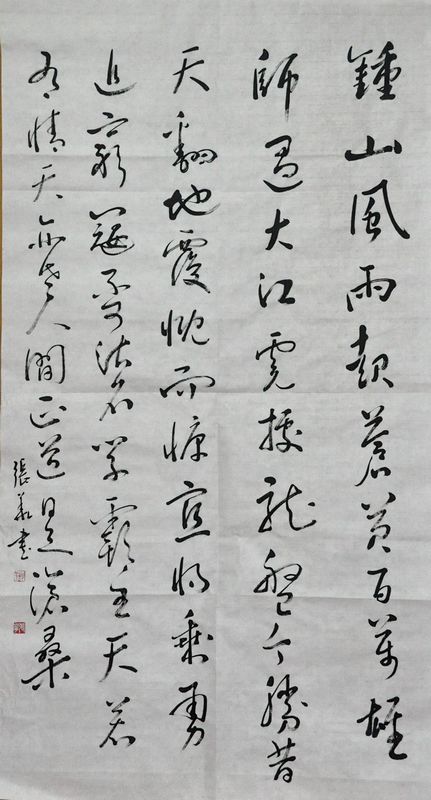 鍾山風雨起蒼黃百萬雄
師過大江虎據龍盤今勝昔
天翻地覆慨而慷宜將乘勇
追窮寇不可沽名學霸王天若
有情天亦老人間正道是滄桑
張 書